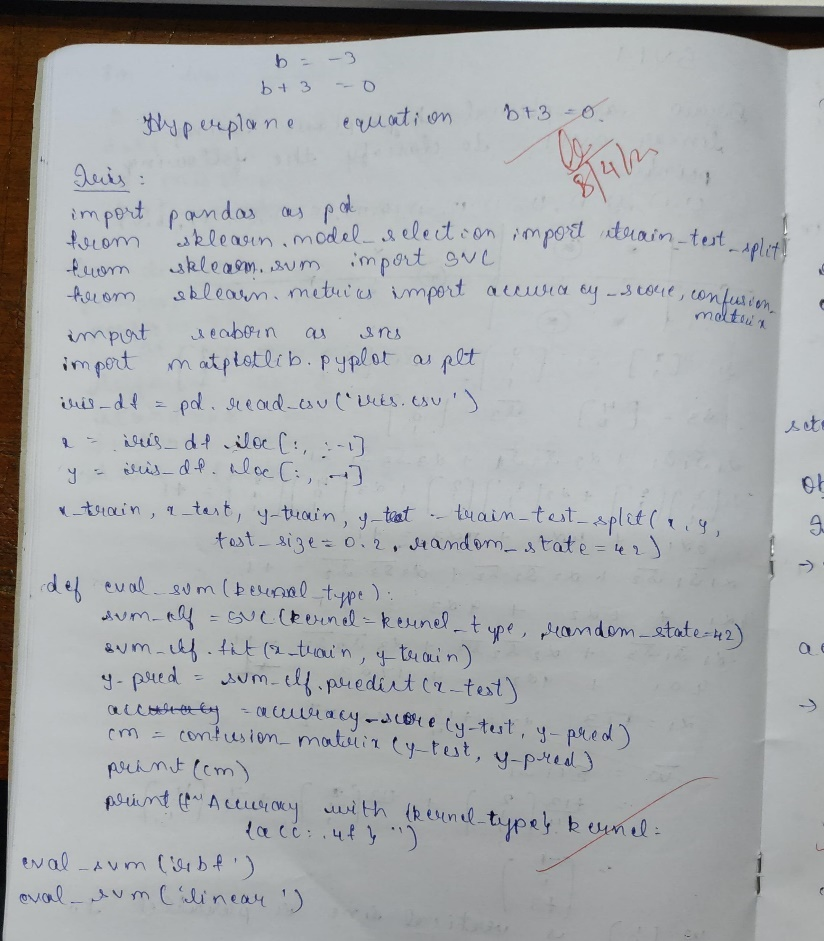 b = -3
b + 3 = 0
Hyperplane equation b+3 = 0.
8/4/2
Iris :
import pandas as pd
from sklearn.model_selection import train_test_split
from sklearn.svm import SVC
from sklearn.metrics import accuracy_score, confusion_
matrix
import seaborn as sns
import matplotlib.pyplot as plt
iris_df = pd.read_csv('iris.csv')
x = iris_df.iloc[:, :-1]
y = iris_df.iloc[:, -1]
x_train, x_test, y_train, y_test = train_test_split(x, y,
test_size = 0.2, random_state = 42)
def eval_svm(kernal_type):
svm_clf = SVC(kernel=kernel_type, random_state=42)
svm_clf.fit(x_train, y_train)
y_pred = svm_clf.predict(x_test)
accuracy = accuracy_score(y_test, y_pred)
cm = confusion_matrix(y_test, y_pred)
print(cm)
print(f"Accuracy with {kernel_type} kernel:
{acc:.4f}")
eval_svm('rbf')
eval_svm('linear')